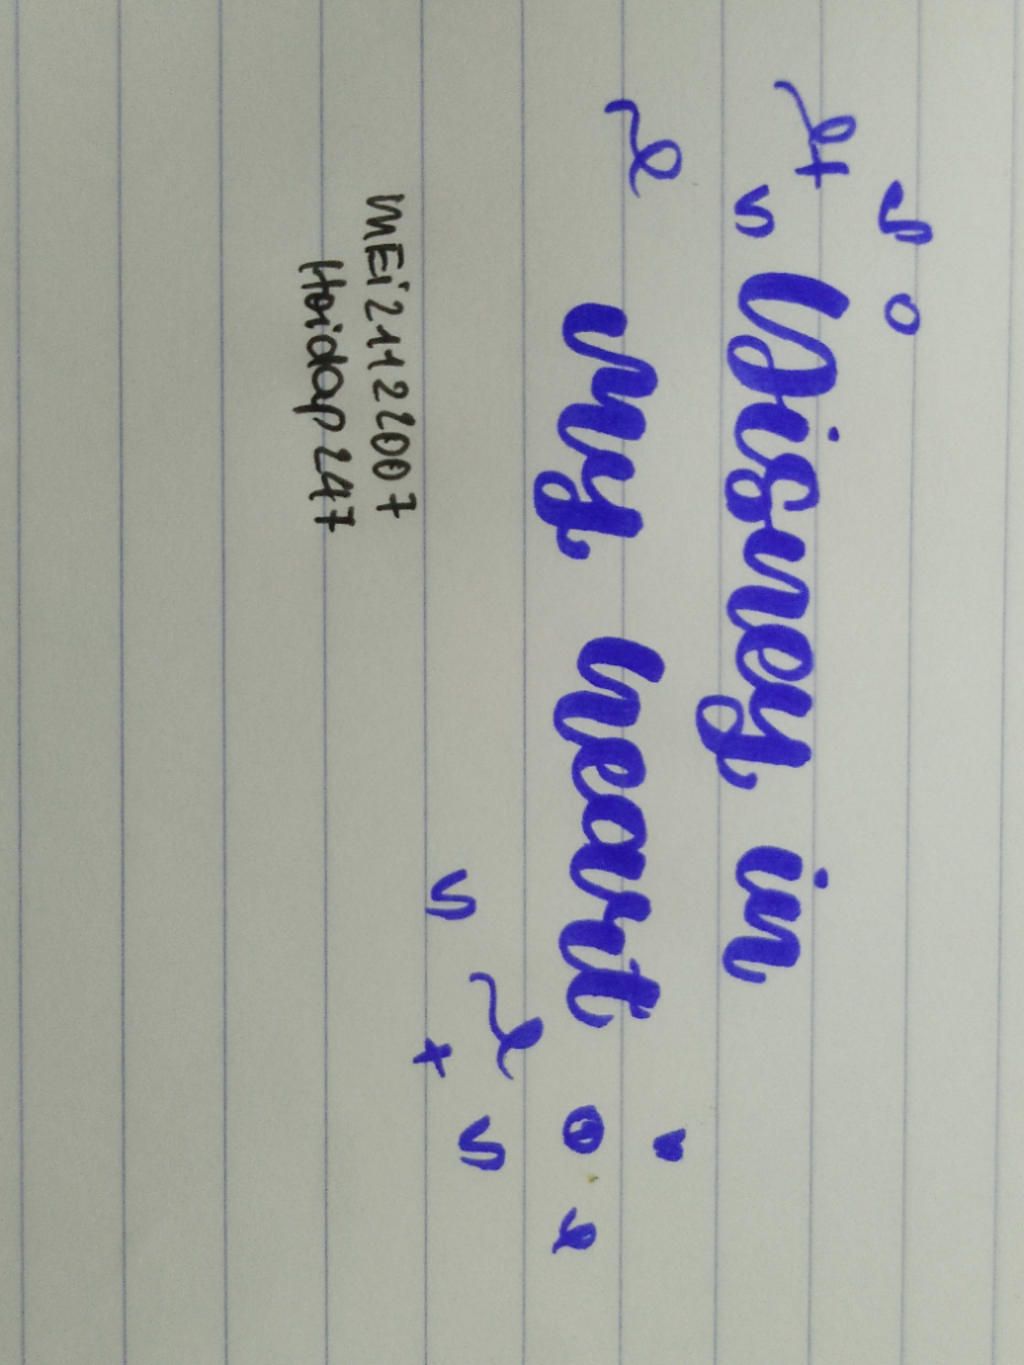 Disney in
my heart
MEi21122007
Hoidap247